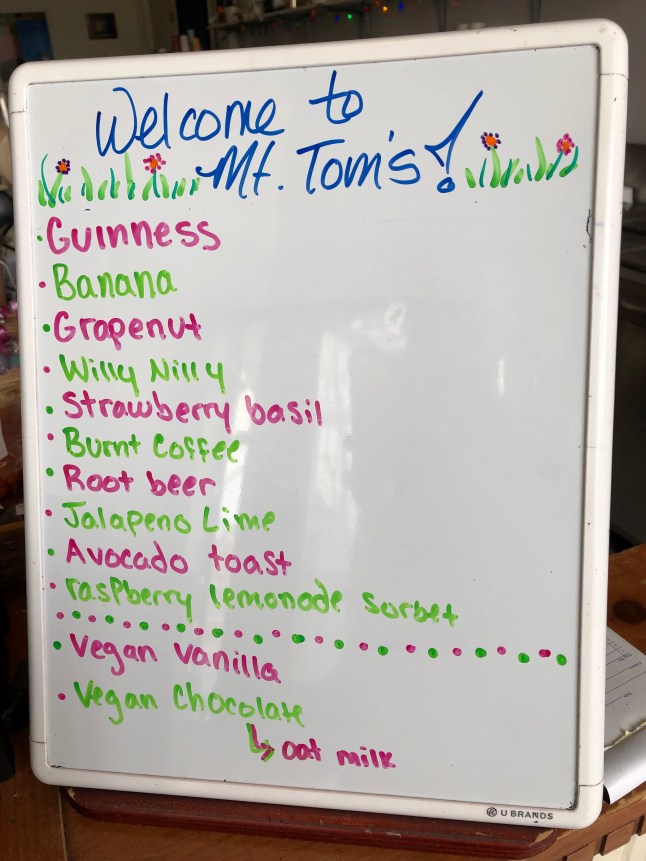 Welcome to
Mt. Tom's!
• Guinness
• Banana
• Grapenut
• Willy Nilly
• Strawberry basil
• Burnt Coffee
• Root beer
• Jalapeno Lime
• Avocado toast
• raspberry lemonade sorbet
• Vegan vanilla
• Vegan Chocolate
↳ oat milk
U BRANDS